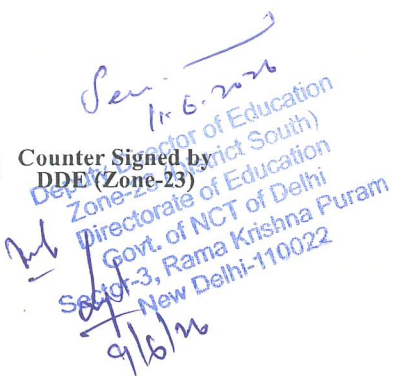 11.6.2026
Counter Signed by
DDE (Zone-23)
Deputy Director of Education
Zone-23, (District South)
Directorate of Education
Govt. of NCT of Delhi
Sector-3, Rama Krishna Puram
New Delhi-110022
9/6/26